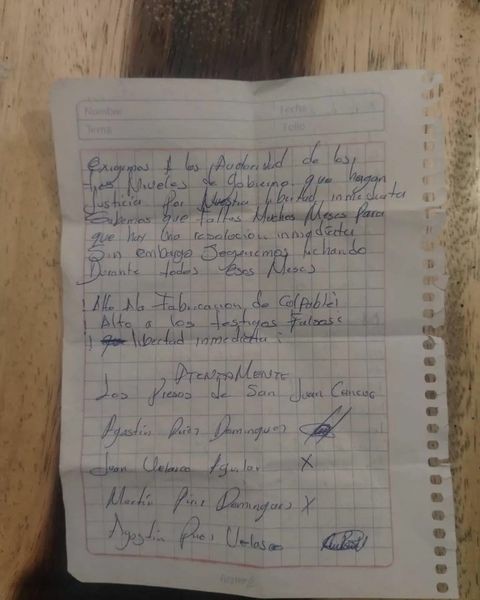 Nombre Fecha
Tema Folio
Exigemos A los Autoridad de los
tres Niveles de Gobierno que hagan
Justicia Por Nuestra libertad inmediata
Sabemos que faltas Muchos Meses Para
que hay Una resolucion inmediata
Sin embargo Seguemos luchando
Durante todos Esos Meses
¡ Alto A la Fabricacion de Colpables
¡ Alto a los testigos Falsos
¡ libertad inmediatia !
ATENTAMENTE
Los Presos de San Juan Cancuc
Agustin Peres Domingues
Juan Velasco Aguilar X
Martin Peres Domingues X
Agostin Peres Velasco